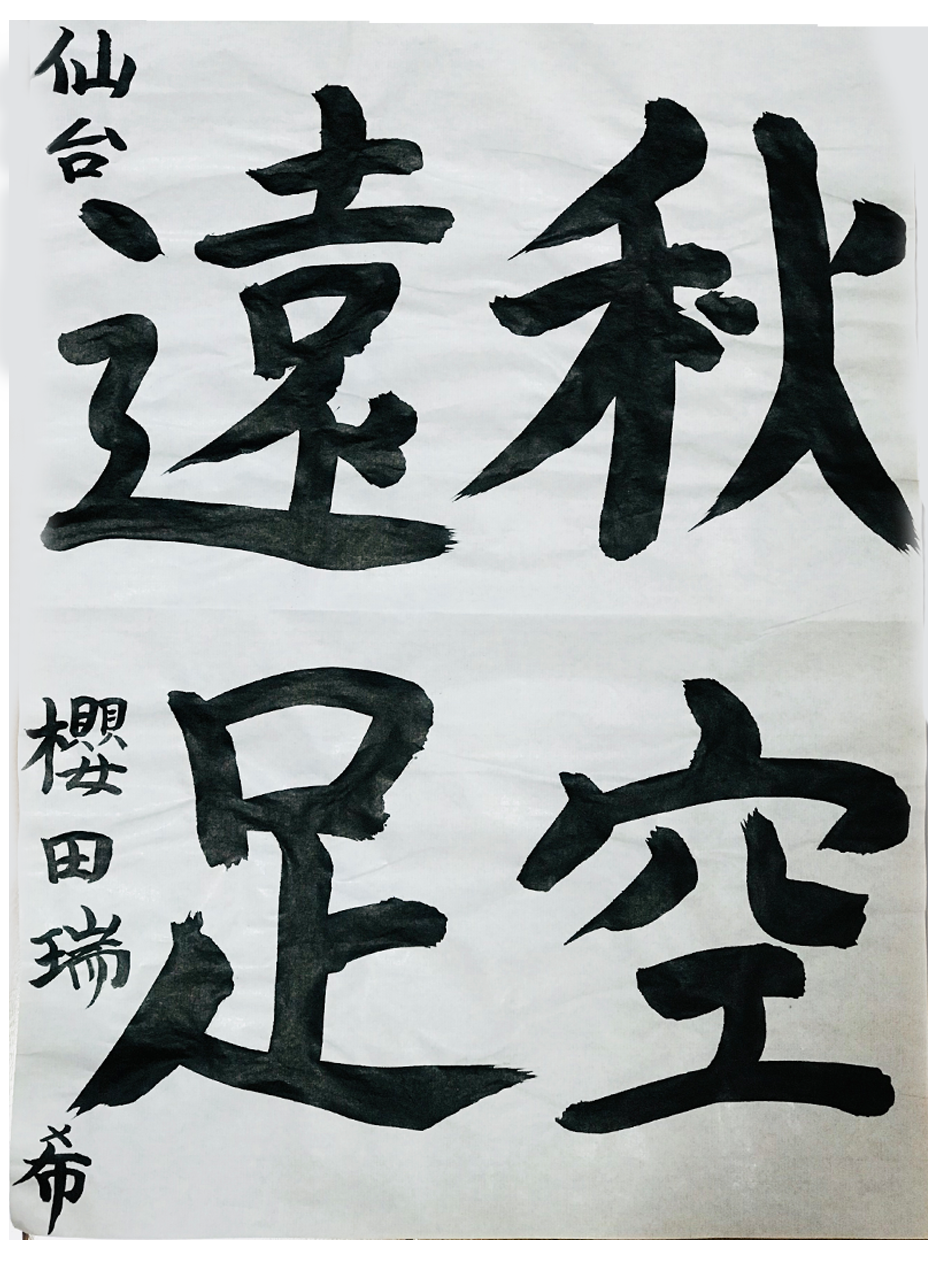 秋空
遠足
仙台 櫻田瑞希